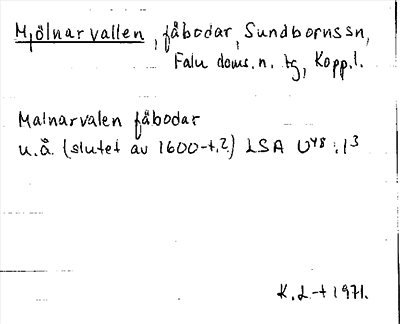 Mjölnarvallen, fäbodar, Sundbornssn,
Falu doms.n. tg, Kopp.l.
Malnarvalen fäbodar
u.å. (slutet av 1600-t.?) LSA U48:13
K.L-t 1971.